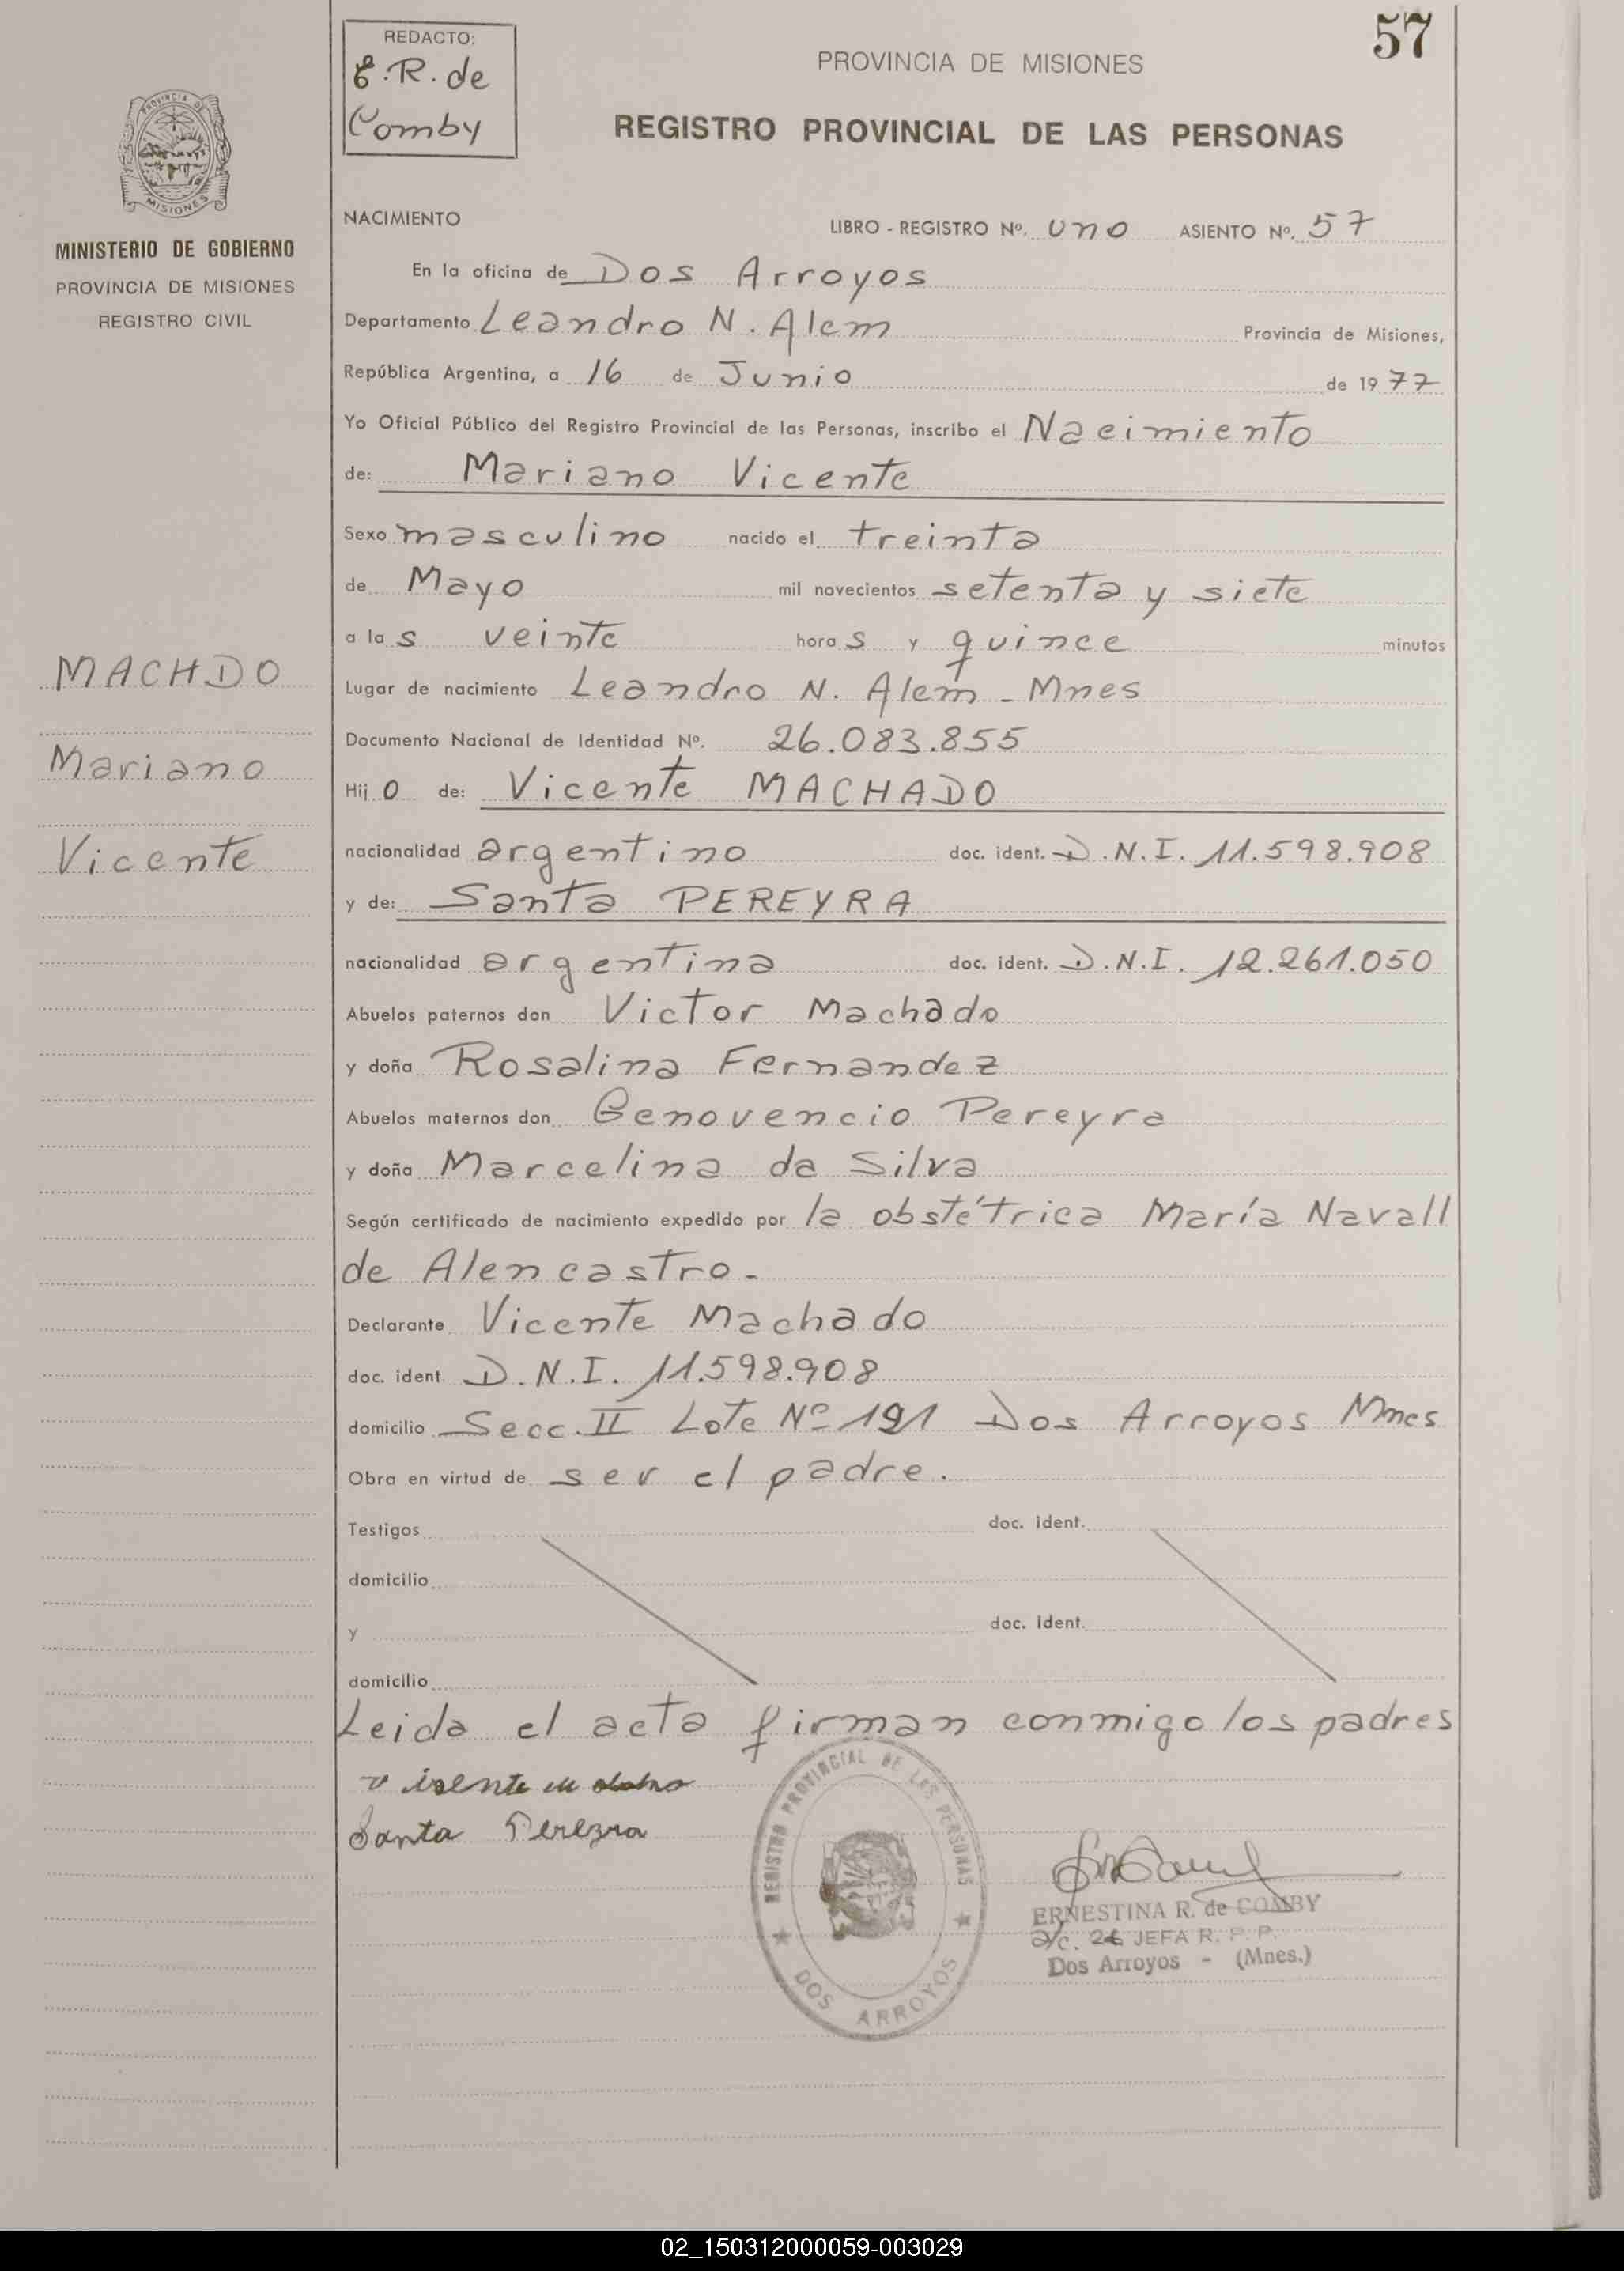 57
REDACTO:
E.R. de
Comby
PROVINCIA DE MISIONES
REGISTRO PROVINCIAL DE LAS PERSONAS
PROVINCIA DE
MISIONES
MINISTERIO DE GOBIERNO
PROVINCIA DE MISIONES
REGISTRO CIVIL
MACHDO
Mariano
Vicente
NACIMIENTO
LIBRO - REGISTRO Nº. uno ASIENTO Nº. 57
En la oficina de Dos Arroyos
Departamento Leandro N. Alem Provincia de Misiones,
República Argentina, a 16 de Junio de 1977
Yo Oficial Público del Registro Provincial de las Personas, inscribo el Nacimiento
de: Mariano Vicente
Sexo masculino nacido el treinta
de Mayo mil novecientos setenta y siete
a las veinte horas y quince minutos
Lugar de nacimiento Leandro N. Alem - Mnes
Documento Nacional de Identidad Nº. 26.083.855
Hijo de: Vicente MACHADO
nacionalidad argentino doc. ident. D.N.I. 11.598.908
y de: Santa PEREYRA
nacionalidad argentina doc. ident. D.N.I. 12.261.050
Abuelos paternos don Victor Machado
y doña Rosalina Fernandez
Abuelos maternos don Genovencio Pereyra
y doña Marcelina da Silva
Según certificado de nacimiento expedido por la obstétrica María Navall
de Alencastro.
Declarante Vicente Machado
doc. ident D.N.I. 11.598.908
domicilio Secc. II Lote Nº 191 Dos Arroyos Mnes
Obra en virtud de ser el padre.
Testigos doc. ident.
domicilio
y doc. ident.
domicilio
Leida el acta firman conmigo los padres
Santa Perezra
REGISTRO PROVINCIAL DE LAS PERSONAS
DOS ARROYOS
ERNESTINA R. de COMBY
a/c. JEFA R. P. P.
Dos Arroyos - (Mnes.)
02_150312000059-003029